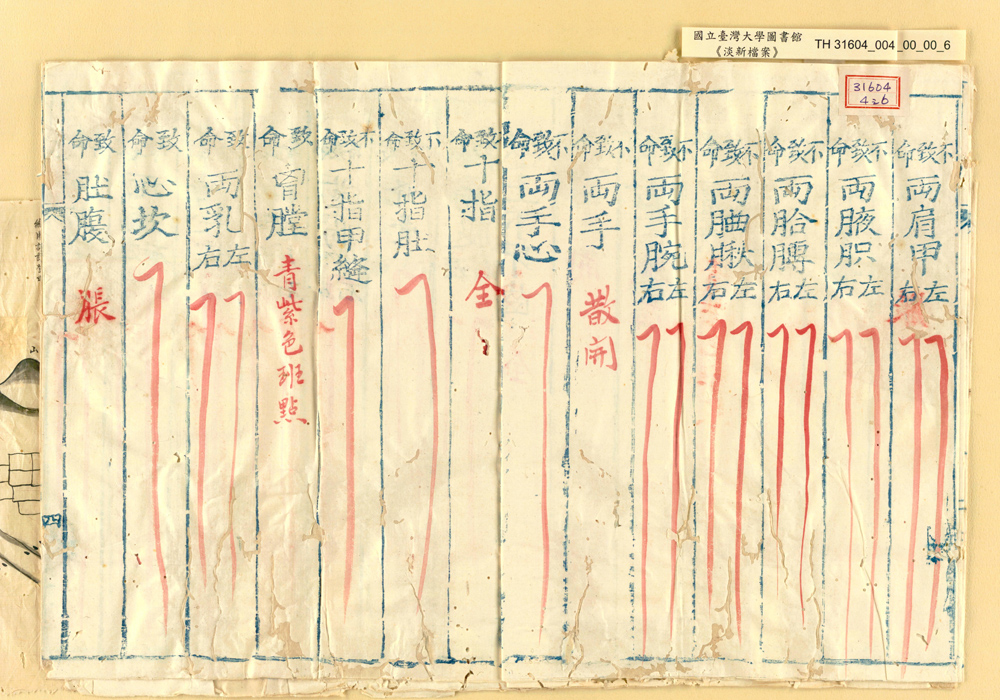 國立臺灣大學圖書館
《淡新檔案》
TH 31604_004_00_00_6
31604
426
不致命 両肩甲 左右
不致命 両腋胑 左右
不致命 両肐膊 左右
不致命 両䏰脉 左右
不致命 両手腕 左右
不致命 両手 散開
不致命 両手心
致命 十指 全
不致命 十指肚
不致命 十指甲縫
致命 胷膛 青紫色班點
致命 両乳 左右
致命 心坎
致命 肚腹 脹
四
山